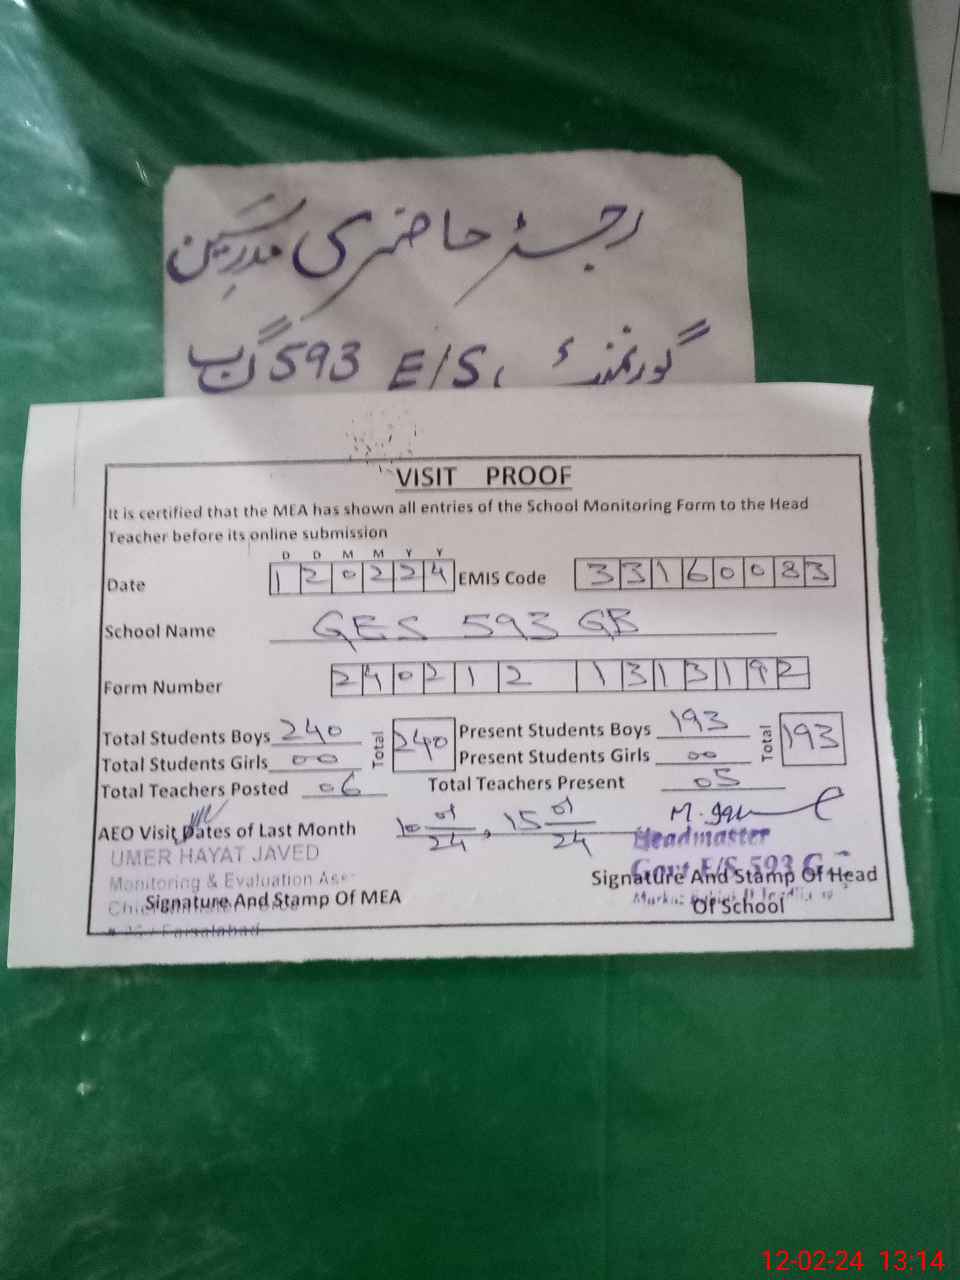 رجسٹر حاضری مدرسین
گورنمنٹ E/S، 593 گ ب
VISIT PROOF
It is certified that the MEA has shown all entries of the School Monitoring Form to the Head
Teacher before its online submission
D D M M Y Y
Date 120224 EMIS Code 33160083
School Name GES 593 GB
Form Number 240212 1313192
Total Students Boys 240 Total 240 Present Students Boys 193 Total 193
Total Students Girls 00 Present Students Girls 00
Total Teachers Posted 06 Total Teachers Present 05
AEO Visit Dates of Last Month 10 01/24, 15 01/24
UMER HAYAT JAVED Headmaster
Monitoring & Evaluation Govt E/S 593 G
Signature And Stamp Of MEA Signature And Stamp Of Head
Of School
Faisalabad
12-02-24 13:14